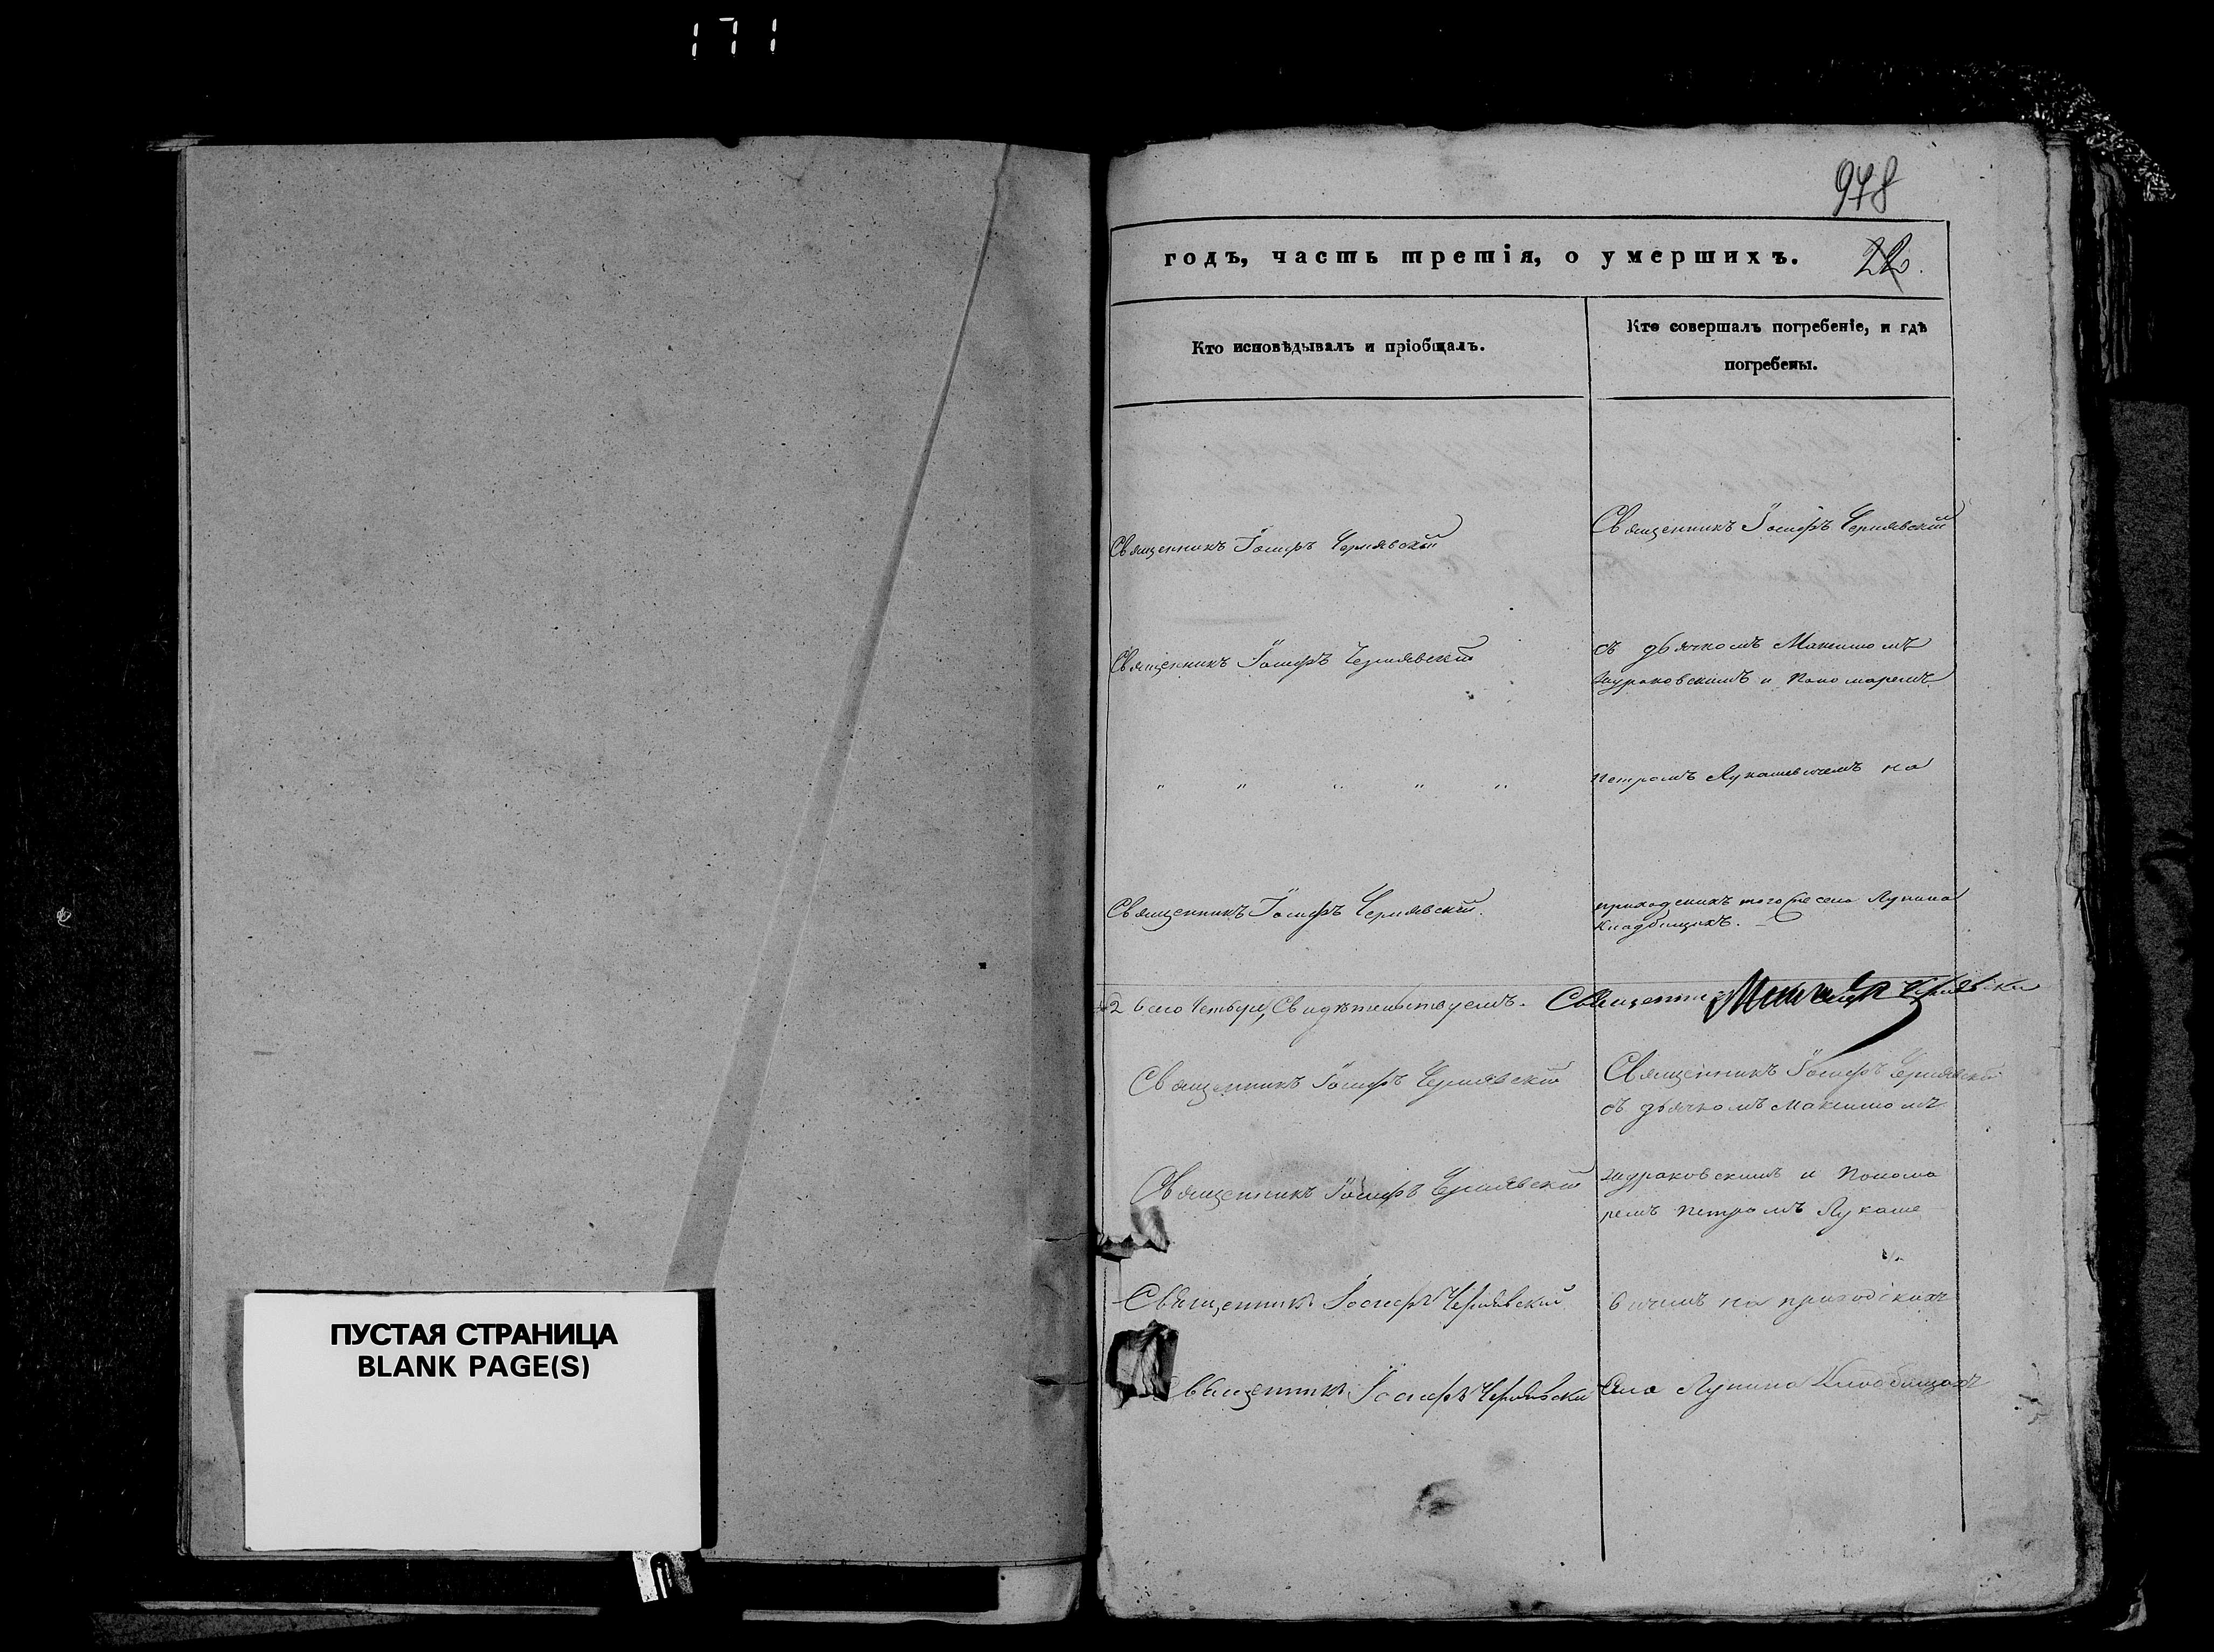 171
978
годъ, часть третія, о умершихъ. 22.
Кто исповѣдывалъ и пріобщалъ.
Кто совершалъ погребеніе, и гдѣ
погребены.
Священникъ Іосифъ Чернявскій
Священникъ Іосифъ Чернявскій
Священникъ Іосифъ Чернявскій
съ дьячкомъ Максимомъ
Жураковскимъ и Пономаремъ
" " " " "
Петромъ Лукашевичемъ на
Священникъ Іосифъ Чернявскій.
приходскихъ того же села Лунина
кладбищахъ.
Свидѣтельствуемъ. Священникъ Чернявский
Священникъ Іосифъ Чернявскій
Священникъ Іосифъ Чернявскій
съ дьячкомъ Максимомъ
Священникъ Іосифъ Чернявскій
Жураковскимъ и Понома
ремъ Петромъ Лукаше
Священникъ Іосифъ Чернявский
вичемъ на приходскихъ
Священникъ Іосифъ Чернявский
Села Лунина Кладбищахъ
ПУСТАЯ СТРАНИЦА
BLANK PAGE(S)